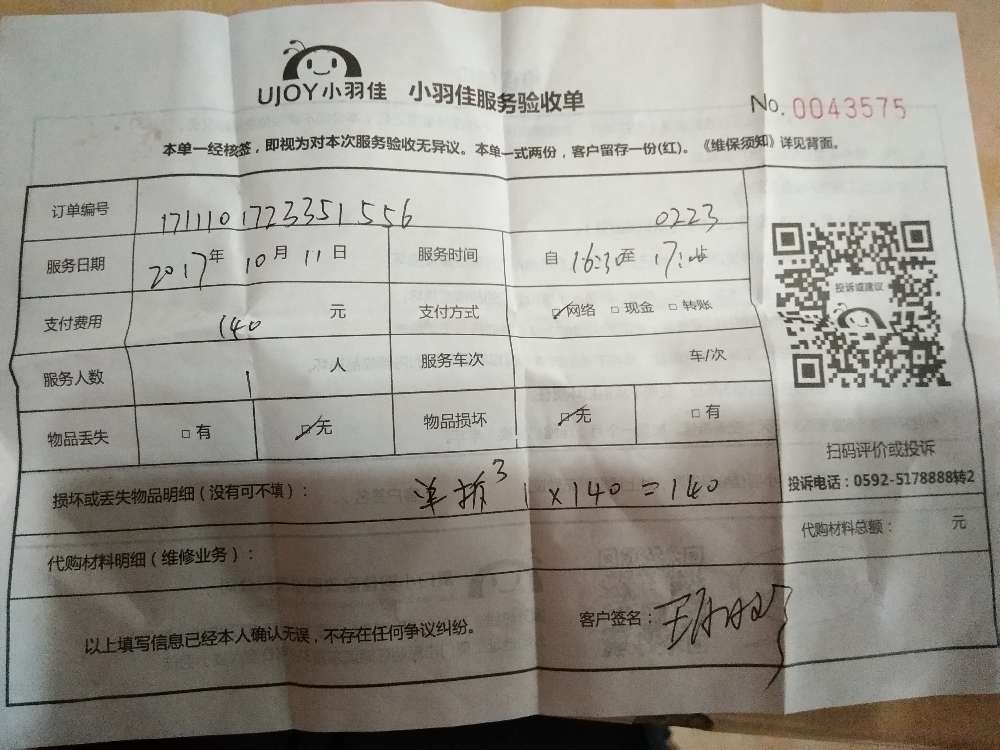 UJOY小羽佳 小羽佳服务验收单
No. 0043575
本单一经核签，即视为对本次服务验收无异议。本单一式两份，客户留存一份(红)。《维保须知》详见背面。
订单编号 1711101723351556 0223
服务日期 2017年 10月 11日 服务时间 自 16:30至 17:
支付费用 140 元 支付方式 ☑网络 □现金 □转账
服务人数 1 人 服务车次 车/次
物品丢失 □有 ☑无 物品损坏 ☑无 □有
投诉或建议
扫码评价或投诉
投诉电话：0592-5178888转2
损坏或丢失物品明细（没有可不填）： 单拆 3 1×140=140
代购材料总额： 元
代购材料明细（维修业务）：
以上填写信息已经本人确认无误，不存在任何争议纠纷。
客户签名：